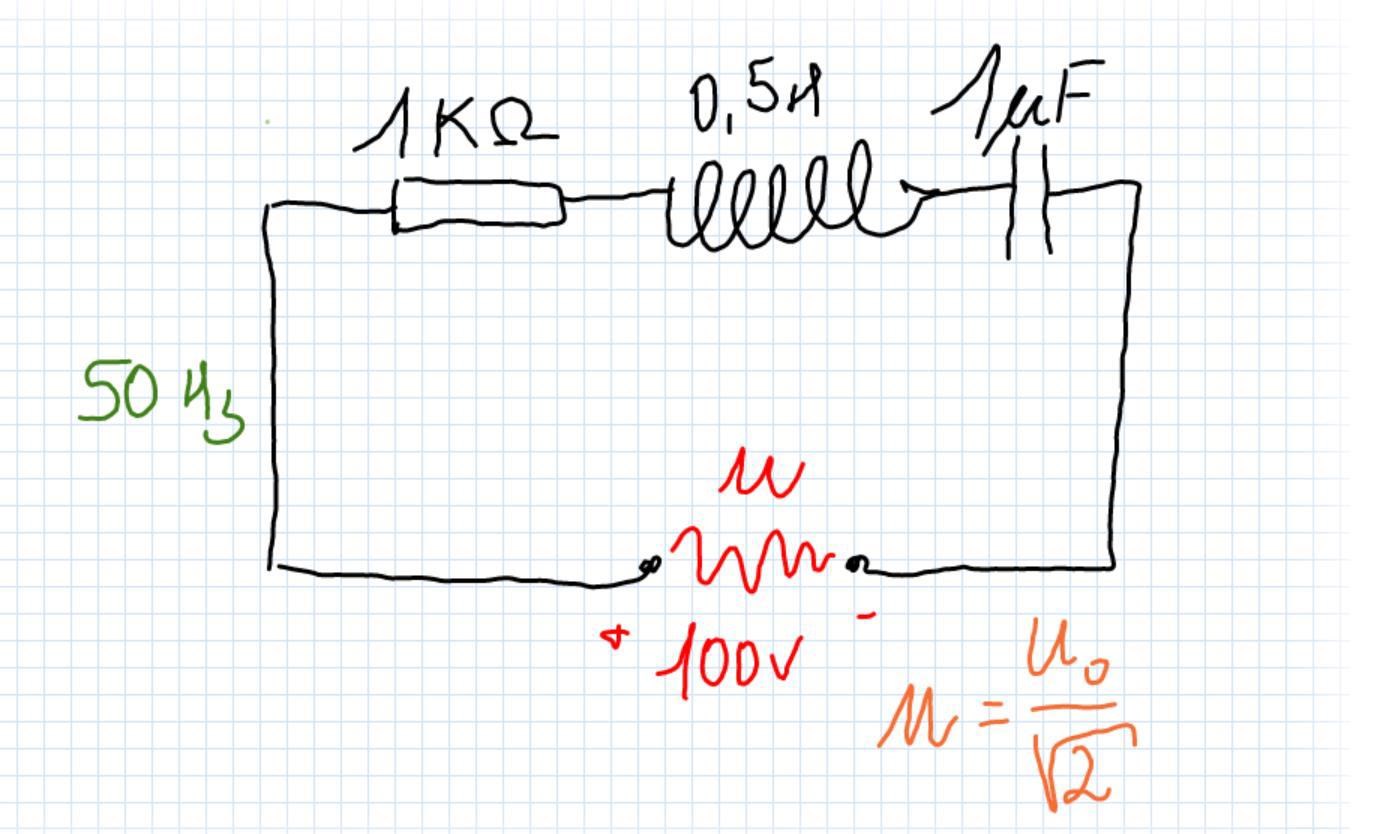 1KΩ
0,5H
1μF
50 Hz
u
+ 100V -
u = u₀/√2